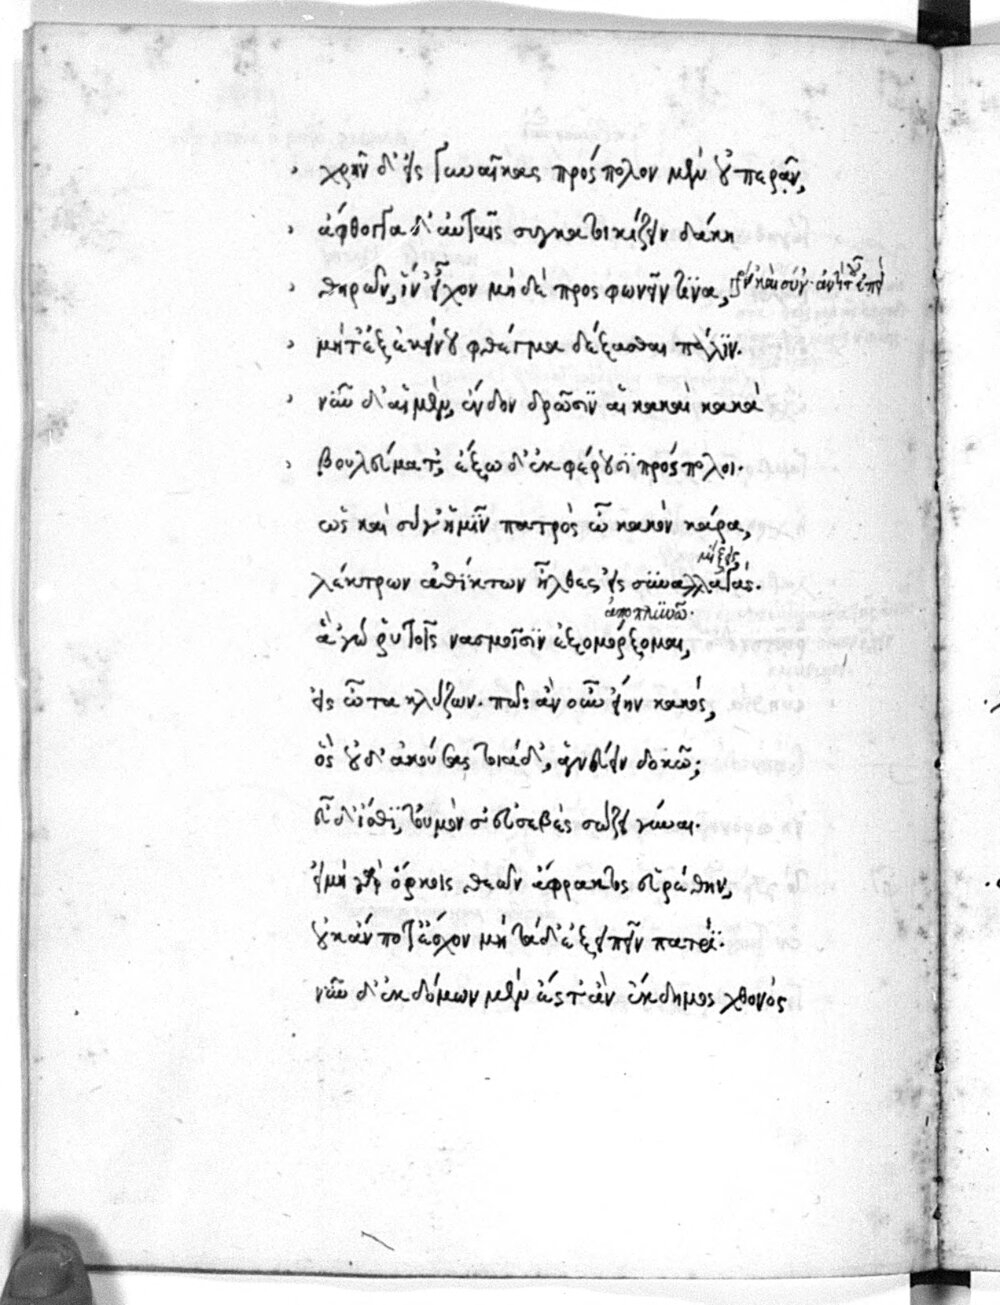 χρῆν δ' εἰς γυναῖκας πρόσπολον μὲν οὐ περᾶν,
ἄφθογγα δ' αὐταῖς συγκατοικίζειν δάκη
θηρῶν, ἵν' εἶχον μηδὲ προσφωνεῖν τινα,
μήτ' ἐξ ἐκείνου φθέγμα δέξασθαι πάλιν.
νῦν δ' αἱ μὲν ἔνδον δρῶσιν αἱ κακαὶ κακὰ
βουλεύματ', ἔξω δ' ἐκφέρουσι πρόσπολοι.
ὡς καὶ σύ γ' ἡμῖν πατρὸς ὦ κακὸν κάρα,
μίξεις
λέκτρων ἀθίκτων ἦλθες εἰς συναλλαγάς.
ἀποπλυνῶ.
ἁγὼ ῥυτοῖς νασμοῖσιν ἐξομόρξομαι,
εἰς ὦτα κλύζων. πῶς ἂν οὖν εἴην κακός,
ὃς οὐδ' ἀκούσας τοιάδ', ἁγνεύειν δοκῶ;
εὖ δ' ἴσθι, τοὐμόν σ' εὐσεβὲς σώζει γύναι.
εἰ μὴ γὰρ ὅρκοις θεῶν ἄφρακτος εὑρέθην,
οὐκ ἄν ποτ' ἔσχον μὴ τάδ' ἐξειπεῖν πατρί.
νῦν δ' ἐκ δόμων μὲν ἔς τ' ἂν ἔκδημος χθονὸς